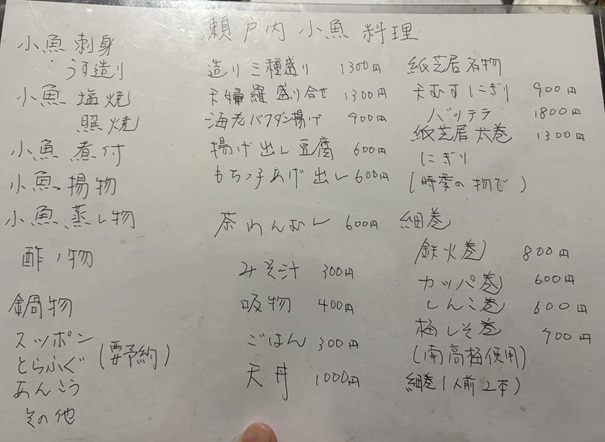 瀬戸内小魚料理
小魚刺身
・うす造り
小魚塩焼
照焼
小魚煮付
小魚揚物
小魚蒸し物
酢ノ物
鍋物
スッポン
とらふぐ(要予約)
あんこう
その他
造り三種盛り 1300円
天婦羅盛り合せ 1300円
海老バクダン揚げ 900円
揚げ出し豆腐 600円
もちっ子あげ出し 600円
茶わんむし 600円
みそ汁 300円
吸物 400円
ごはん 300円
天丼 1000円
紙芝居名物
天むすにぎり 900円
バッテラ 1800円
紙芝居太巻 1300円
にぎり
(時季の物で)
細巻
鉄火巻 800円
カッパ巻 600円
しんこ巻 600円
梅しそ巻 700円
(南高梅使用)
細巻(1人前2本)